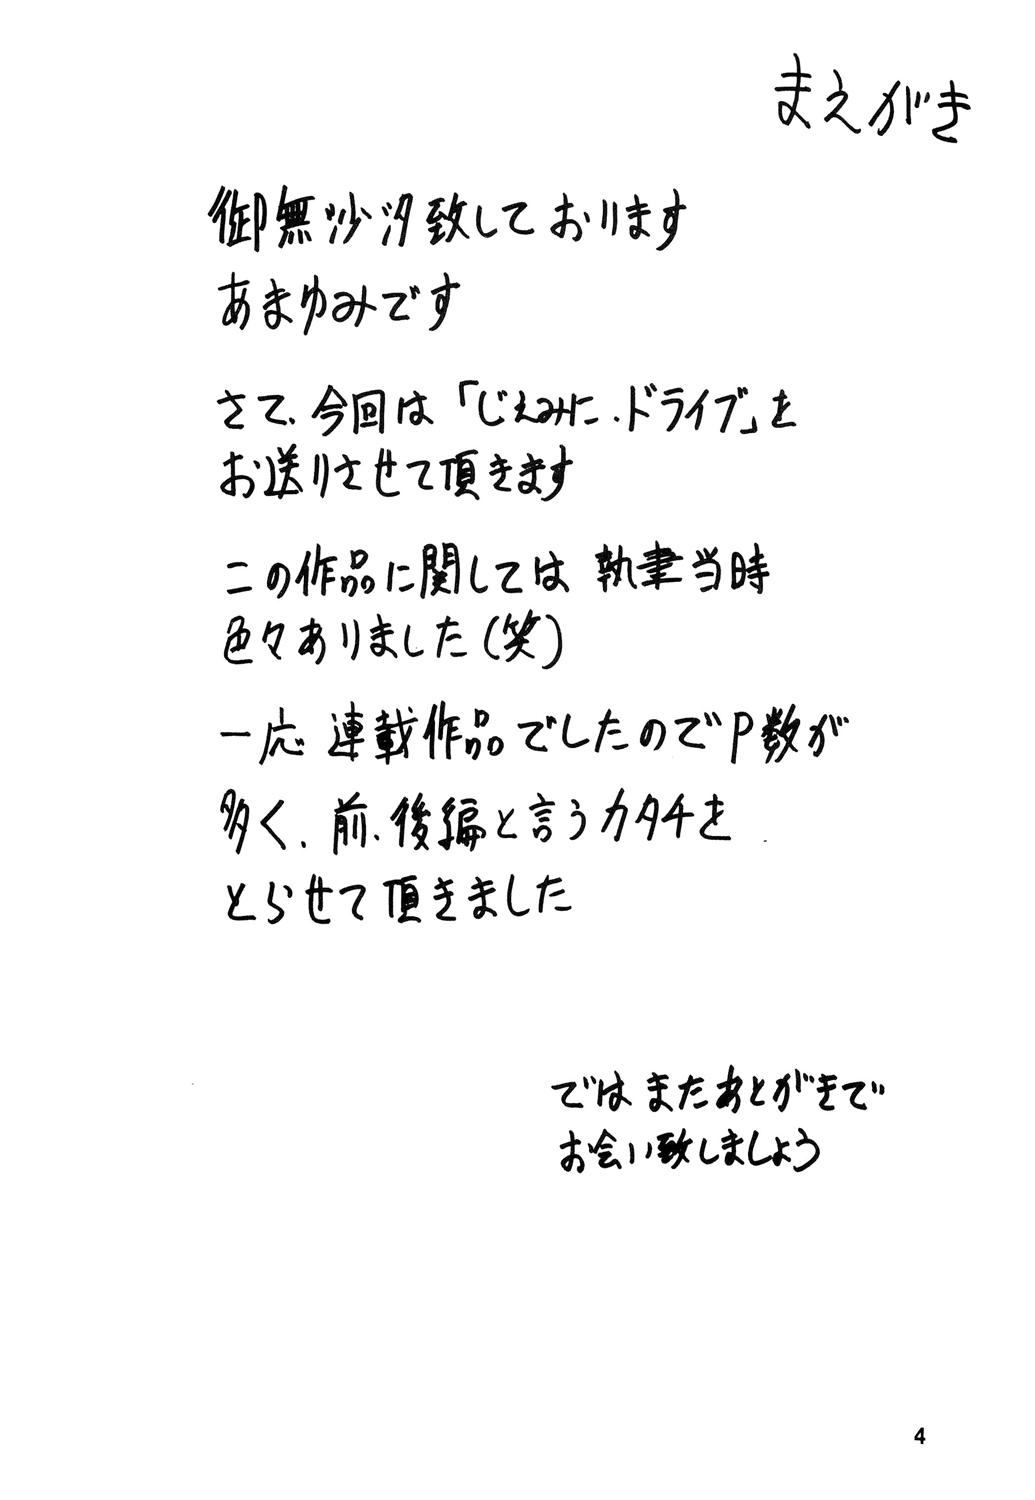 まえがき
御無沙汐致しております
あまゆみです
さて、今回は「じぇみに・ドライブ」を
お送りさせて頂きます
この作品に関しては 執筆当時
色々ありました(笑)
一応 連載作品でしたのでP数が
多く、前、後編と言うカタチを
とらせて頂きました
では またあとがきで
お会い致しましょう
4